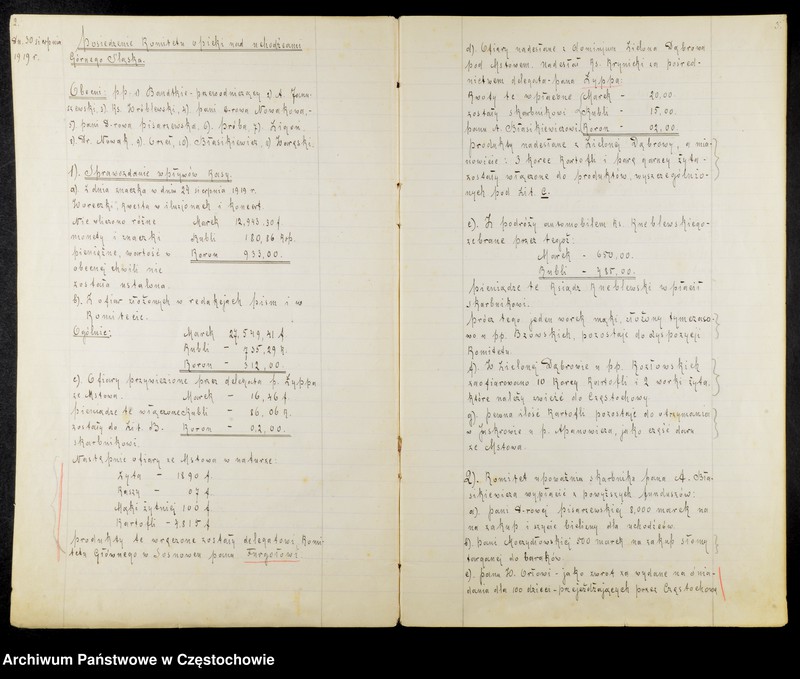 2.
Dn. 30 sierpnia
1919 r.
Posiedzenie Komitetu opieki nad uchodźcami
Górnego Śląska.
Obecni: p.p. 1) Bandtkie-przewodniczący 2) A. Janu-
szewski, 3). Ks. Wróblewski, 4). pani D-rowa Nowakowa,-
5). pani D-rowa Pisarzewska, 6). Próba, 7). Ligon,
8). Dr. Nowak, 9). Orzeł, 10). Błasikiewicz,
1). Sprawozdanie wpływów Kasy.
a). z dnia znaczka w dniu 27 sierpnia 1919 r.
Woreczki, kwesta w iluzjonach i koncert.
Nie wliczono różne Marek 12,943,30 f
monety i znaczki Rubli 180,86 kop.
pieniężne, wartość w Koron - 933,00.
obecnej chwili nie
została ustalona.
b). Z ofiar złożonych w redakcjach pism i w
Komitecie.
Ogólnie: Marek 27,549,41 f
Rubli - 735,29 k.
Koron - 312,00.
c). Ofiary przywiezione przez delegata p. Zyppa
ze Mstowa. Marek - 16,46 f.
pieniądze te włączone Rubli - 86,06 k.
zostały do Lit. B. Koron - 02,00.
skarbnikowi.
Następnie ofiary ze Mstowa w naturze:
Żyta - 1890 f.
Kaszy - 07 f.
Mąki żytniej 100 f.
Kartofli - 4815 f
produkty te wręczone zostały delegatowi Komi-
tetu Głównego w Sosnowcu panu Furgołowi
3
d). Ofiary nadesłane z dominjum Zielona Dąbrowa
pod Mstowem. Nadesłał Ks. Krynicki za pośred-
nictwem delegata-pana Zyppa:
Kwoty te wpłacone Marek - 20,00
zostały skarbnikowi Rubli - 15,00.
panu A. Błasikiewiczowi Koron - 02,00.
produkty nadesłane z Zielonej Dąbrowy, a mia-
nowicie: 3 korce kartofli i parę garncy żyta-
zostały włączone do produktów, wyszczególnio-
nych pod Lit. C.
e). Z podróży automobilem ks. Kneblewskiego-
zebrane przez tegoż:
Marek - 650,00.
Rubli - 485,00.
pieniądze te Ksiądz Kneblewski wpłacił
skarbnikowi.
prócz tego jeden worek mąki, złożony tymczaso-
wo u pp. Bzowskich, pozostaje do dyspozycji
Komitetu.
f). W Zielonej Dąbrowie u p.p. Kozłowskich
zaofiarowano 10 Korcy Kartofli i 2 worki żyta,
które należy zwieźć do Częstochowy
g). pewna ilość Kartofli pozostaje do otrzymania
w Jaskrowie u p. Apanowicza, jako część daru
ze Mstowa.
2). Komitet upoważnia skarbnika pana A. Bła-
sikiewicza wypłacić z powyższych funduszów:
a). pani D-rowej Pisarzewskiej 8,000 marek na
na zakup i szycie bielizny dla uchodźców.
b). pani Moczydłowskiej 500 marek na zakup słomy
targanej do baraków.
c). panu W. Orłowi - jako zwrot za wydane na śnia-
dania dla 100 dzieci - przejeżdżających przez Częstochowę
Archiwum Państwowe w Częstochowie